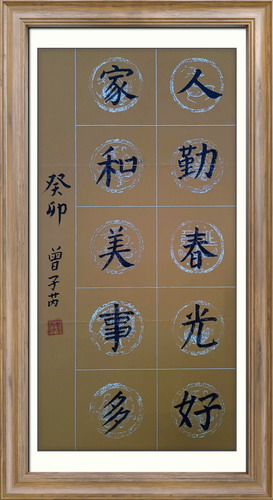 人勤春光好
家和美事多
癸卯
曾子芮